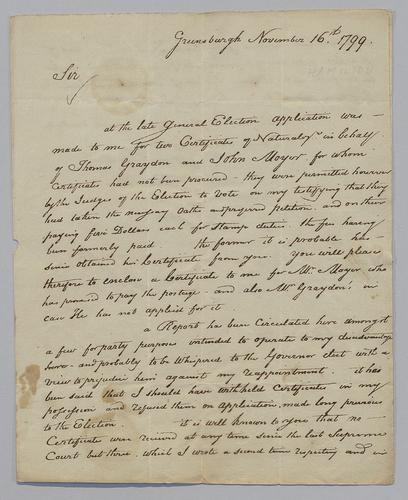 Greensburgh November 16th 1799.
Sir
at the late General Election application was
made to me for two Certificates of Naturalon in behalf
of Thomas Graydon and John Moyer for whom
Certificates had not been procured - they were permitted however
by the Judges of the Election to Vote on my testifying that they
had taken the necessary Oaths and preferred petitions and on their
paying five Dollars each for Stamp duties. the fees having
been formerly paid. the former it is probable has
since obtained his Certificate from you. You will please
therefore to enclose a Certificate to me for Mr. Moyer who
has promised to pay the postage - and also Mr. Graydon's in
case He has not applied for it.
a Report has been Circulated here amongst
a few for party purposes intended to operate to my disadvantage
here - and probably to be Whispered to the Governor elect with a
view to prejudice him against my reappointment. it has
been said that I should have withheld Certificates in my
possession and refused them on Application, made long previous
to the Election. it is well known to you that no
Certificates were received at any time since the last Supreme
Court but three, which I wrote a second time respecting and in